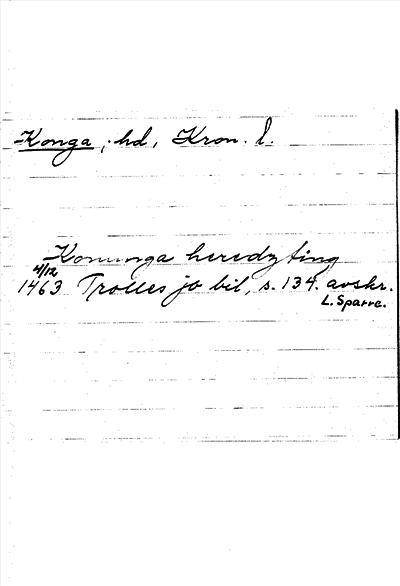 Konga, hd, Kron. l.
Konunga heredzting
4/12
1463 Trolles jo bil, s. 134. avskr.
L. Sparre.